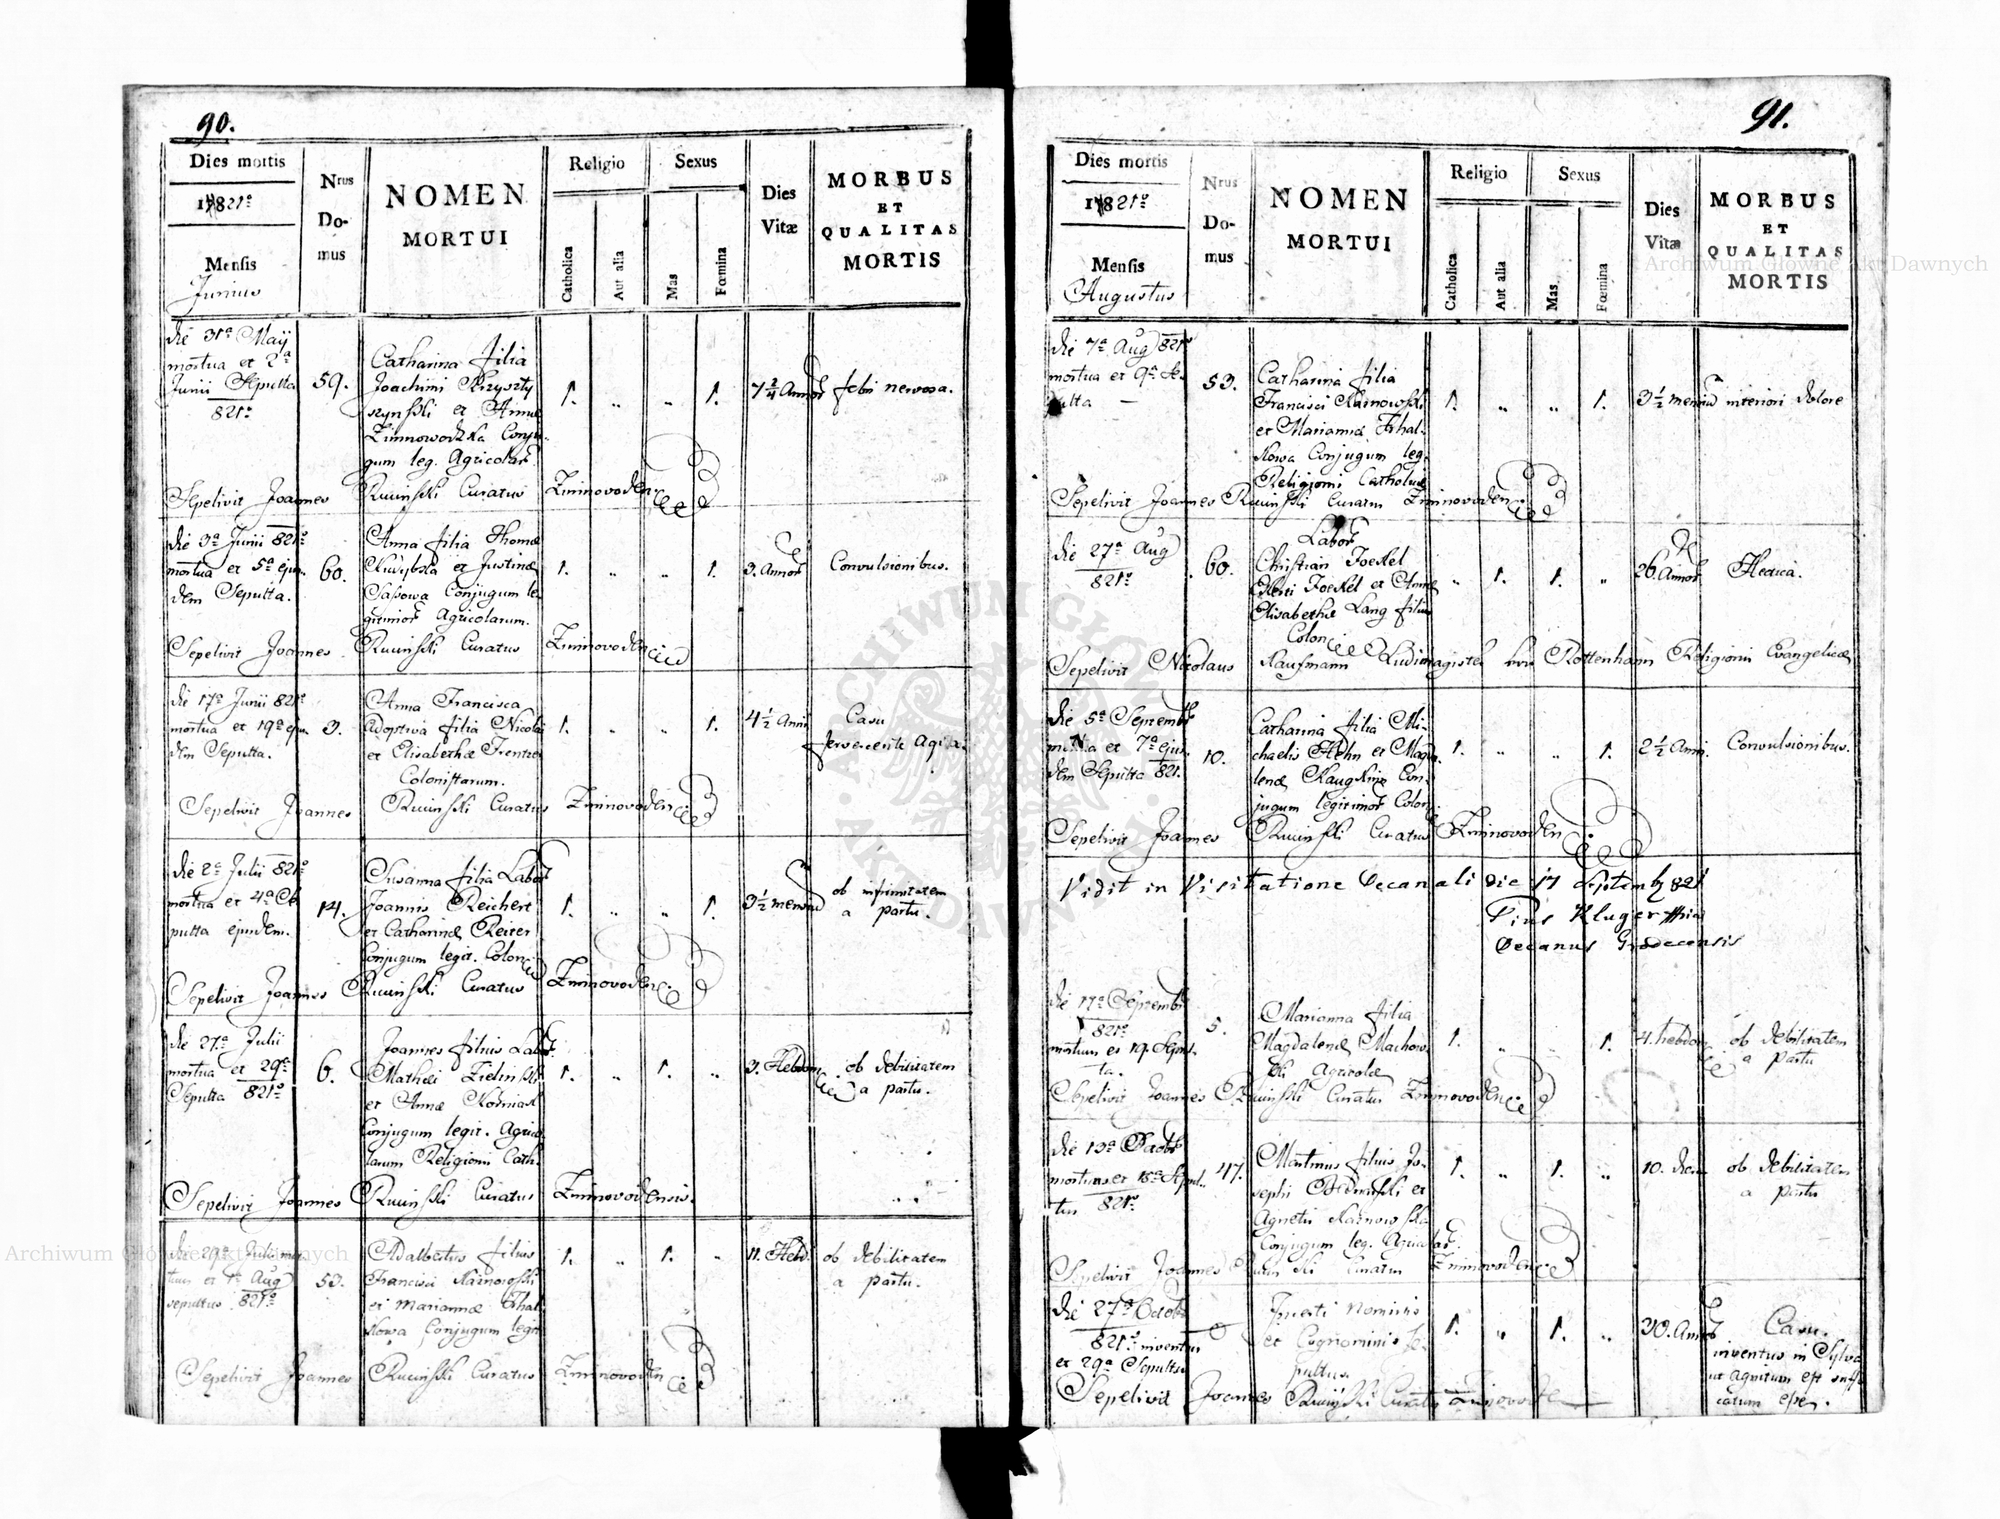 90.
Dies mortis
1821º
Mensis
Junius
Nrus
Do-
mus
NOMEN
MORTUI
Religio
Catholica
Aut alia
Sexus
Mas
Fœmina
Dies
Vitæ
MORBUS
ET
QUALITAS
MORTIS
die 31ª Maÿ
mortua et 2ª
Junii Sepulta
821º
59.
Catharina filia
Joachimi Krzyszty
szynski et Annæ
Zimnowodzka Conju-
gum leg. Agricolar.
1. „ „ 1.
7 2/4 Annor
febri nervosa.
Sepelivit Joannes Ruciński Curatus Zimnovoden
die 3ª Junii 821º
mortua et 5ª ejus
dem Sepulta.
60.
Anna filia Thomæ
et Justinæ
Sasowa Conjugum le-
gitimor Agricolarum.
1. „ „ 1.
3. Annor
Convulsionibus.
Sepelivit Joannes Ruciński Curatus Zimnovoden
die 17ª Junii 821º
mortua et 19ª ejus
dem Sepulta.
3.
Anna Francisca
adoptiva filia Nicolai
et Elisabethæ Frentze
Colonistarum.
1. „ „ 1.
4 1/2 Anni
Casu
fervescente Aqua.
Sepelivit Joannes Ruciński Curatus Zimnovoden
die 2ª Julii 821º
mortua et 4ª Se
pulta ejusdem.
14.
Susanna filia Labor
Joannis Reichert
et Catharinæ Reiter
Conjugum legit. Colon
1. „ „ 1.
3 1/2 mensium
ob infirmitatem
a partu.
Sepelivit Joannes Ruciński Curatus Zimnovoden
die 27ª Julii
mortua et 29ª
Sepulta 821º
6.
Joannes filius Labor
Mathei Zielinski
et Annæ Kozniak
Conjugum legit. Agrico
larum Religionis Cath.
1. „ 1. „
3. Hebdom
ob debilitatem
a partu.
Sepelivit Joannes Ruciński Curatus Zimnovodensis.
die 29ª Julii mor
tuus et 1ª Aug
sepultus 821º
53.
Adalbertus filius
Francisci Karnowski
et Mariannæ Thal
kowa Conjugum legit
1. „ 1. „
11. Hebd.
ob debilitatem
a partu.
Sepelivit Joannes Ruciński Curatus Zimnovoden
91.
Dies mortis
1821º
Mensis
Augustus
Nrus
Do-
mus
NOMEN
MORTUI
Religio
Catholica
Aut alia
Sexus
Mas
Fœmina
Dies
Vitæ
MORBUS
ET
QUALITAS
MORTIS
die 7ª Aug 821º
mortua et 9ª Se-
pulta —
53.
Catharina filia
Francisci Karnowski
et Mariannæ Thal-
kowa Conjugum leg.
Religionis Catholicæ
1. „ „ 1.
3 1/2 mensium
interiori dolore
Sepelivit Joannes Ruciński Curatus Zimnovoden
die 27ª Aug
821º
60.
Labor
Christian Joekel
Joekel et Annæ
Elisabethæ Lang filius
Colon
„ 1. 1. „
26. Annor
Hectica.
Sepelivit Nicolaus Kaufmann Ludimagister Rottenhann Religionis Evangelicæ
die 5ª Septembr
mortua et 7ª ejus-
dem Sepulta 821.
10.
Catharina filia Mi-
chaelis Hehn et Magda
lenæ Con-
jugum legitimor Colon
1. „ 1.
2 1/2 Anni.
Convulsionibus.
Sepelivit Joannes Ruciński Curatus Zimnovoden
Vidit in Visitatione Decanali die 17 Septemb 821
Pius Kluger
Decanus Grodecensis
die 17ª Septembr
821º
mortum et 19. Sepul-
ta.
5.
Marianna filia
Magdalenæ Machow
ski Agricolæ
1. „ 1.
4. hebdom
ob debilitatem
a partu
Sepelivit Joannes Ruciński Curatus Zimnovoden
die 13ª Octobr
mortuus et 15ª Sepul-
tus 821º
47.
Martinus filius Jo-
sephi Bednarski et
Agnetis Karnowska
Conjugum leg. Agricolar.
1. „ 1. „
10. dierum
ob debilitatem
a partu
Sepelivit Joannes Ruciński Curatus Zimnovoden
die 27ª Octobr
821º inventus
et 29ª Sepultus
Incerti Nominis
et Cognominis Se-
pultus.
1. „ 1. „
30. Annor
Casu.
inventus in Sylva
ut agnitum est suffo
catum esse.
Sepelivit Joannes Ruciński Curatus Zimnovoden
Archiwum Główne Akt Dawnych
ARCHIWUM GŁÓWNE
AKT DAWNYCH
Archiwum Główne Akt Dawnych